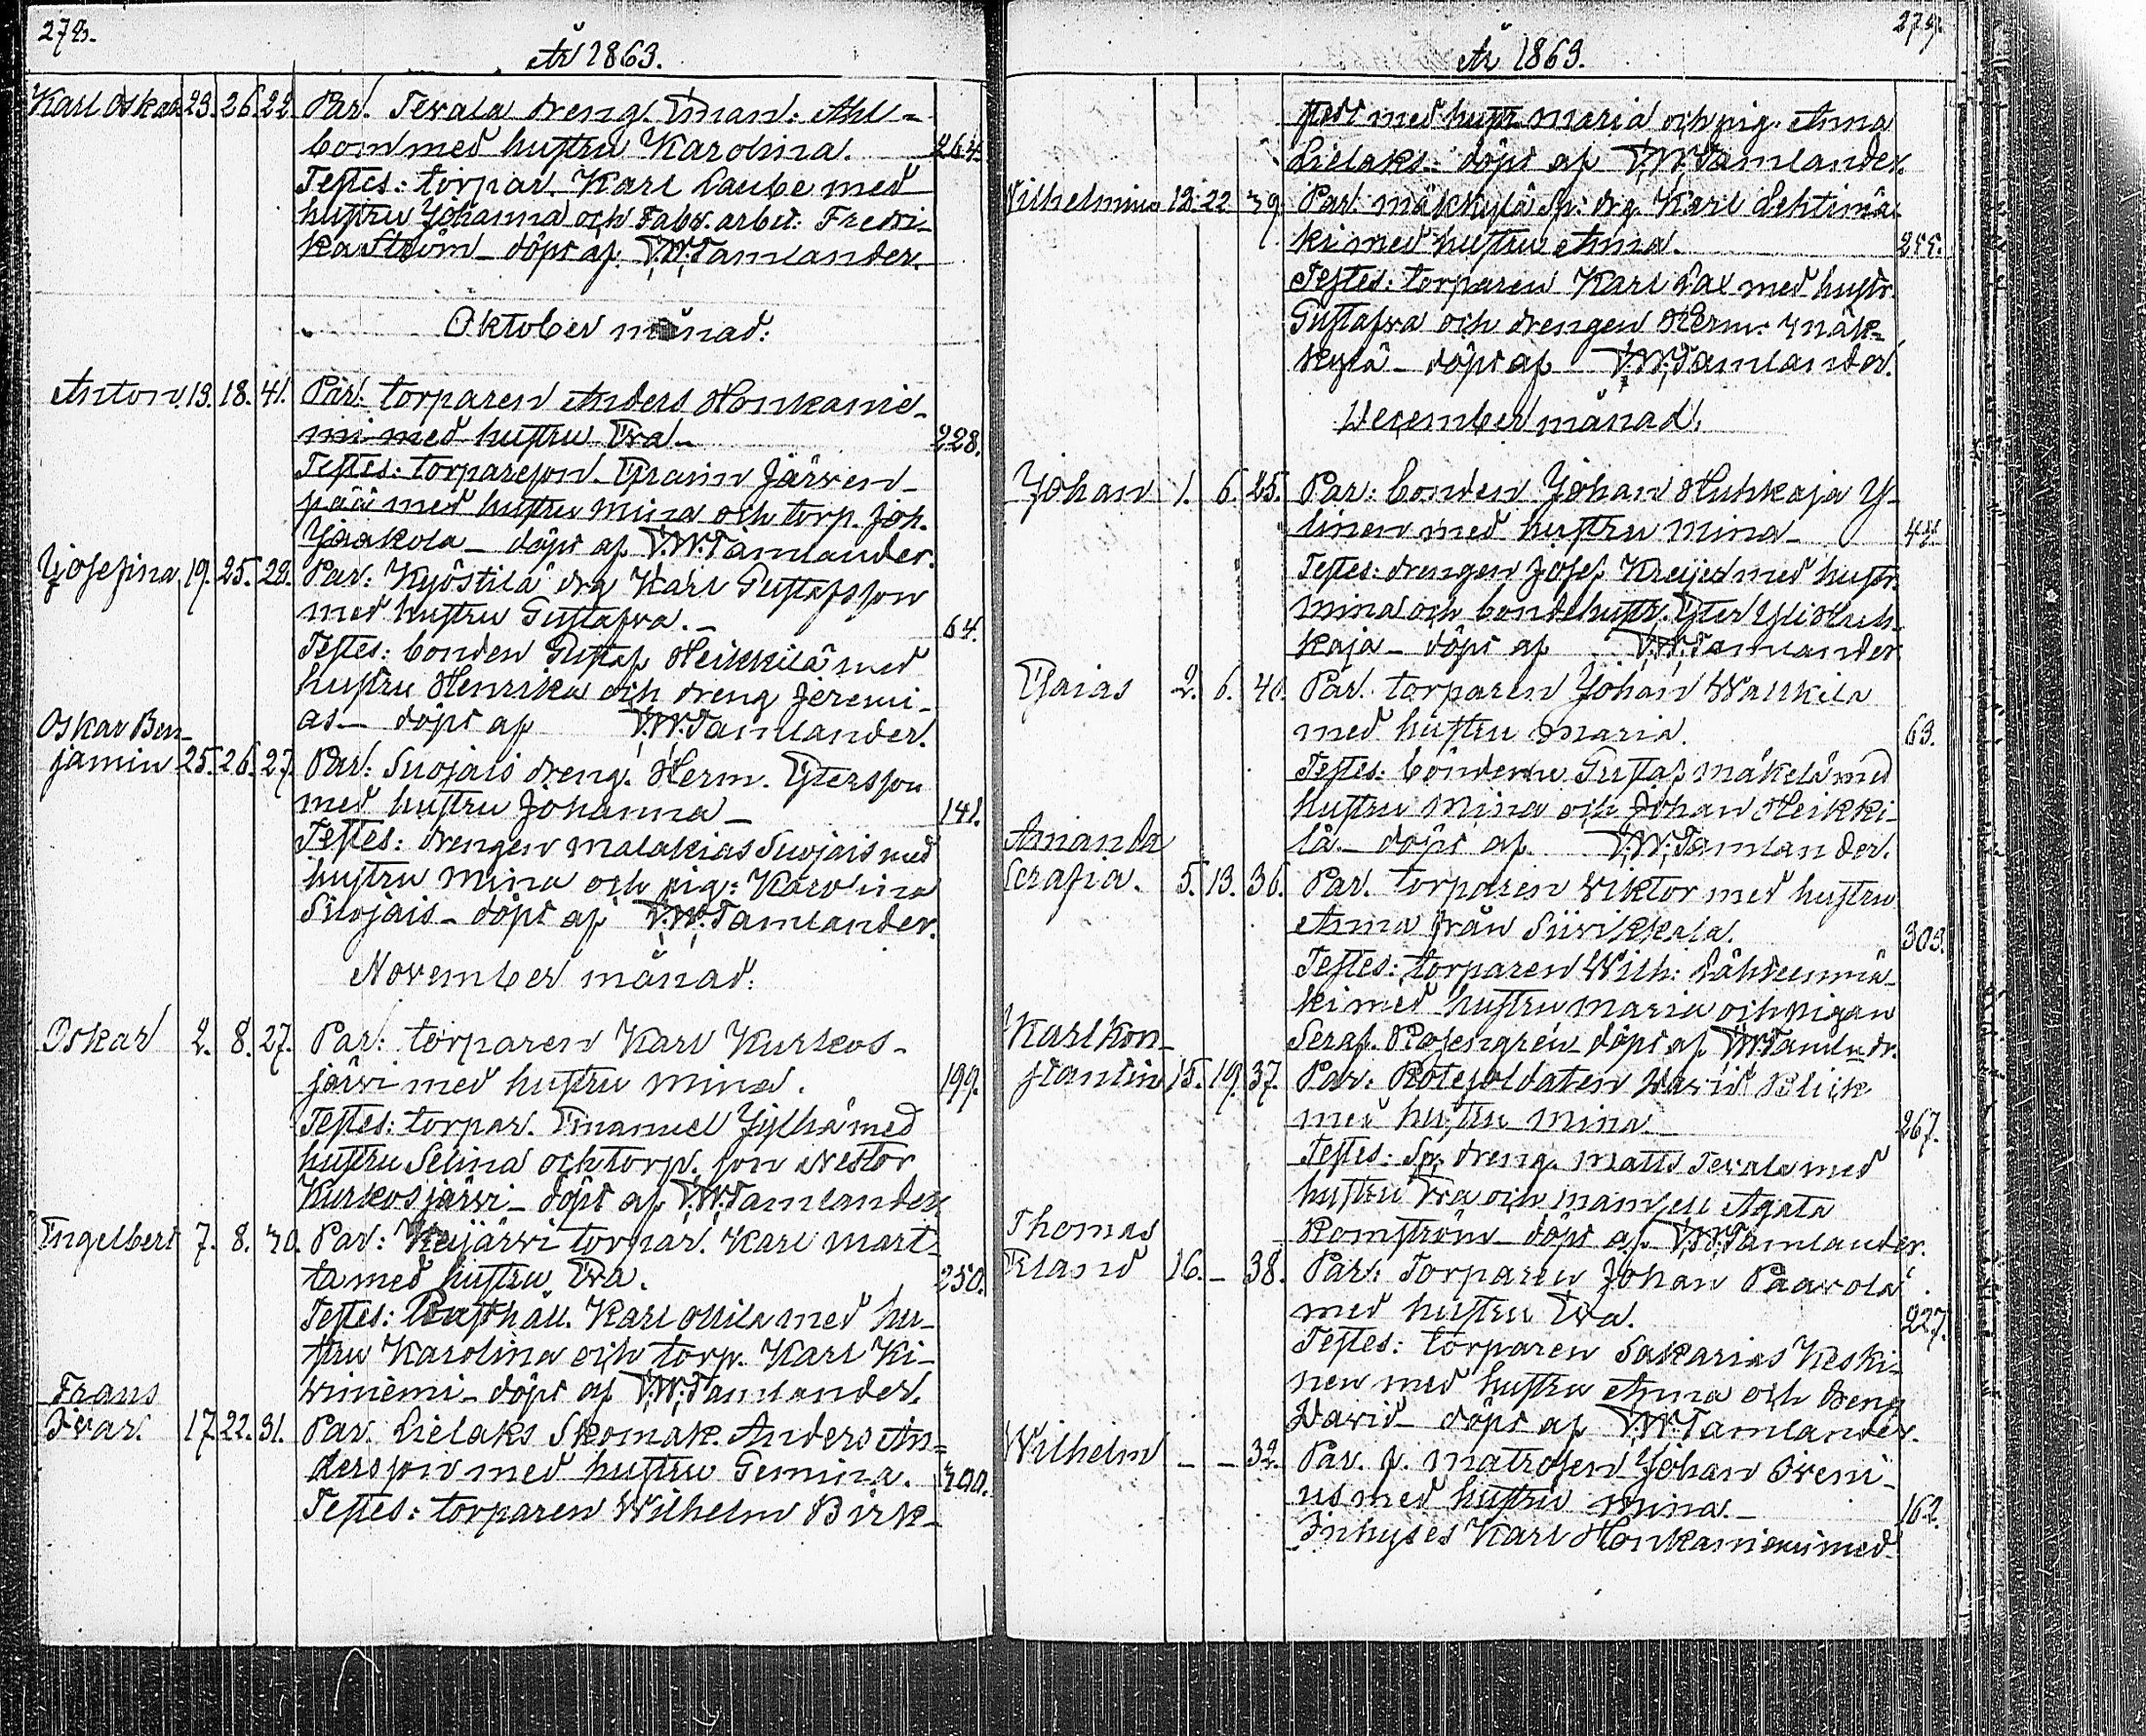 278.
År 1863.
Karl Oskar 23. 26. 22. Par. Tevala dreng. Eman. Ahl-
bom med hustru Karolina. 264.
Testes: torpar. Karl Laube med
hustru Johanna och Fabr. arbet. Fredri-
ka Ström _ döpt af F.W. Tamlander.
Oktober månad:
Anton 13. 18. 41. Par: torparen Anders Honkanie-
mi med hustru Eva _ 228.
Testes: torpareson Efraim Järven-
pää med hustru Mina och torp. Joh.
Jaakola _ döpt af F.W. Tamlander.
Josefina 19. 25. 29. Par: Kyöstilä drg Karl Gustafsson
med hustru Gustafva. _ 64.
Testes: bonden Gustaf Heikkilä med
hustru Henrika och dreng Jeremi-
as _ döpt af F.W. Tamlander.
Oskar Ben-
jamin 25. 26. 27. Par: Suojais dreng. Herm. Estersson
med hustru Johanna _ 141.
Testes: drengen Malakias Suojais med
hustru Mina och pig: Karolina
Suojais _ döpt af F.W. Tamlander.
November månad:
Oskar 2. 8. 27. Par: torparen Karl Kurkos-
järvi med hustru Mina. 199.
Testes: torpar. Emanuel Jylhä med
hustru Selina och torp. son Nestor
Kurkosjärvi _ döpt af F.W. Tamlander
Engelbert 7. 8. 40. Par: Keijärvi torpar. Karl Mart-
ta med hustru Eva. 250.
Testes: Rusthåll. Karl Ollila med hu-
stru Karolina och torp. Karl Ki-
viniemi _ döpt af F.W. Tamlander.
Frans
Ivar 17. 22. 31. Par. Lielaks Skomak. Anders An-
dersson med hustru Gemina. 400.
Testes: torparen Wilhelm Birk-
279.
År 1863.
stedt med hustr Maria och pig. Anna
Lielaks: döpt af F.W. Tamlander.
Wilhelmina 13. 22. 39. Par. Mäkkylä Sp: drg Karl Lehtimä-
ki med hustru Anna. 255.
Testes: torparen Karl Lax med hustr.
Gustafva och drengen Herm. Mäk-
kylä _ döpt af F.W. Tamlander.
December månad.
Johan 1. 6. 25. Par: bonden Johan Huhkaja Y-
linen med hustru Mina _ 44.
Testes: drengen Josef Kreijer med hustr.
Mina och bondehustr. Ester Yli Huh-
kaja _ döpt af F.W. Tamlander
Esaias 2. 6. 40. Par. torparen Johan Walkila
med hustru Maria. 63.
Testes: bönderne Gustaf Mäkelä med
hustru Mina och Johan Heikki-
lä _ döpt af F.W. Tamlander.
Amanda
Serafia. 5. 13. 36. Par. torparen Viktor med hustru
Anna från Siivikkala. 303.
Testes: torparen Wilh: Lähteenmä-
ki med hustru Maria och pigan
Seraf. Rosengrén _ döpt af F.W. Tamlndr.
Karl Kon-
stantin 15. 19. 37. Par: Rotesoldaten David Blick
med hustru Mina _ 267.
Testes: Sp. dreng. Matts Tevala med
hustru Eva och mamsell Agata
Romström _ döpt af F.W. Tamlander.
Thomas
Eland 16. _ 38. Par: Torparen Johan Paavola
med hustru Eva. 227.
Testes: torparen Sakarias Keski-
nen med hustru Anna och Dreng
David _ döpt af F.W. Tamlander.
Wilhelm _ _ 32. Par. v. matrosen Johan Iveni-
us med hustru Mina. _ 162.
Inhyses Karl Honkaniemi med